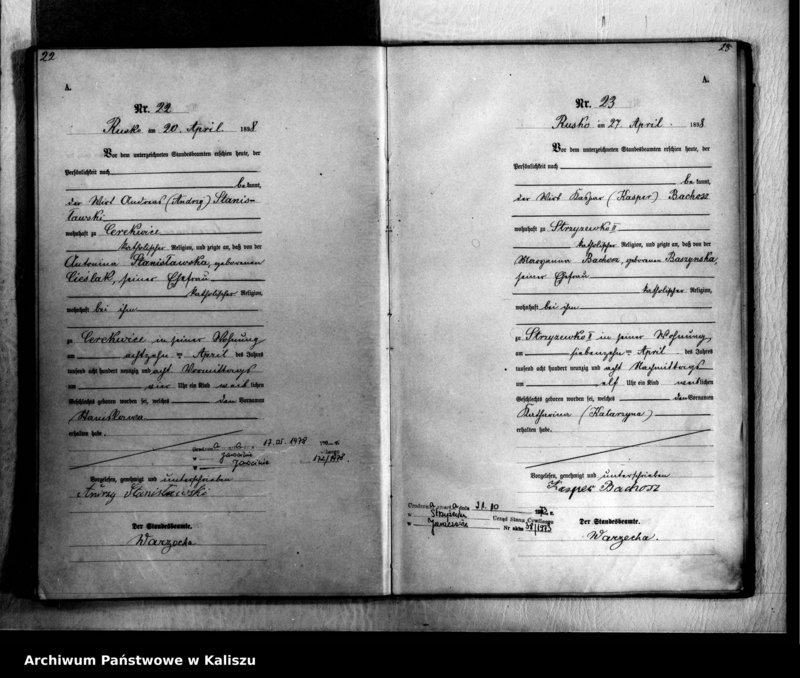 22
A.
Nr. 22
Rusko am 20. April 1898
Vor dem unterzeichneten Standesbeamten erschien heute, der
Persönlichkeit nach
bekannt,
der Wirt Andreas (Andrzej) Stanis-
ławski
wohnhaft zu Cerekwice
katholischer Religion, und zeigte an, daß von der
Antonina Stanisławska, geborenen
Cieślak, seiner Ehefrau
katholischer Religion,
wohnhaft bei ihm
zu Cerekwice in seiner Wohnung
am achtzehn ten April des Jahres
tausend acht hundert neunzig und acht Vormittags
um vier Uhr ein Kind weiblichen
Geschlechts geboren worden sei, welches den Vornamen
Stanisława
erhalten habe.
17.05.1978
Jarocinie
Jarocinie
Vorgelesen, genehmigt und unterschrieben
Andrzej Stanisławski
Der Standesbeamte.
Warzecha
23
A.
Nr. 23
Rusko am 27. April 1898.
Vor dem unterzeichneten Standesbeamten erschien heute, der
Persönlichkeit nach
bekannt,
der Wirt Kaspar (Kasper) Bachosz
wohnhaft zu Stryzewko II
katholischer Religion, und zeigte an, daß von der
Maryanna Bachosz, geborenen Baszynska,
seiner Ehefrau
katholischer Religion,
wohnhaft bei ihm
zu Stryzewko II in seiner Wohnung
am siebenzehn ten April des Jahres
tausend acht hundert neunzig und acht Nachmittags
um elf Uhr ein Kind weiblichen
Geschlechts geboren worden sei, welches den Vornamen
Katharina (Katarzyna)
erhalten habe.
Vorgelesen, genehmigt und unterschrieben
Kasper Bachosz
31.10
Urząd Stanu Cywilnego
Nr aktu
Der Standesbeamte.
Warzecha.
Archiwum Państwowe w Kaliszu